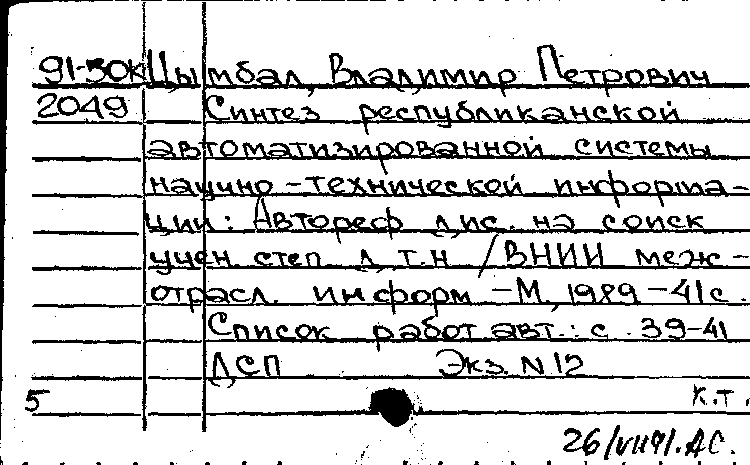 91-30к Цымбал, Владимир Петрович
2049 Синтез республиканской
автоматизированной системы
научно-технической информа-
ции: Автореф дис. на соиск
учен степ д.т.н /ВНИИ меж-
отрасл. информ -М, 1989 -41с.
Список работ авт.: с. 39-41
ДСП Экз. N 12
5 к.т.
26/VII91. АС.